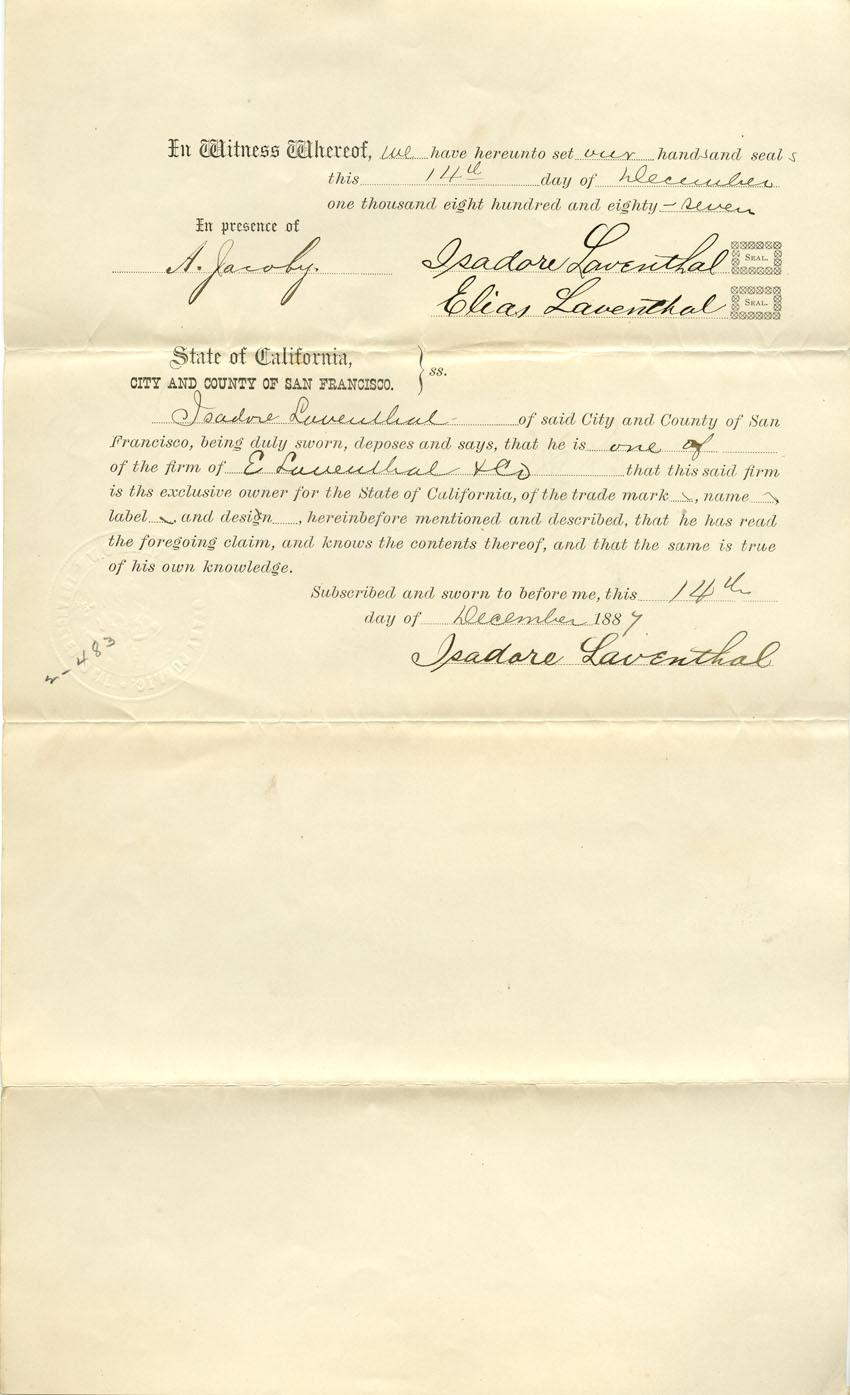 In Witness Whereof, we have hereunto set our hands and seals
this 14th day of December
one thousand eight hundred and eighty-seven
In presence of
A. Jacoby. Isadore Laventhal SEAL.
Elias Laventhal SEAL.
State of California,
CITY AND COUNTY OF SAN FRANCISCO. } ss.
Isadore Laventhal of said City and County of San
Francisco, being duly sworn, deposes and says, that he is one of
of the firm of E Laventhal & Co that this said firm
is ths exclusive owner for the State of California, of the trade mark, name
label and design, hereinbefore mentioned and described, that he has read
the foregoing claim, and knows the contents thereof, and that the same is true
of his own knowledge.
Subscribed and sworn to before me, this 14th
day of December 1887
Isadore Laventhal
2-483